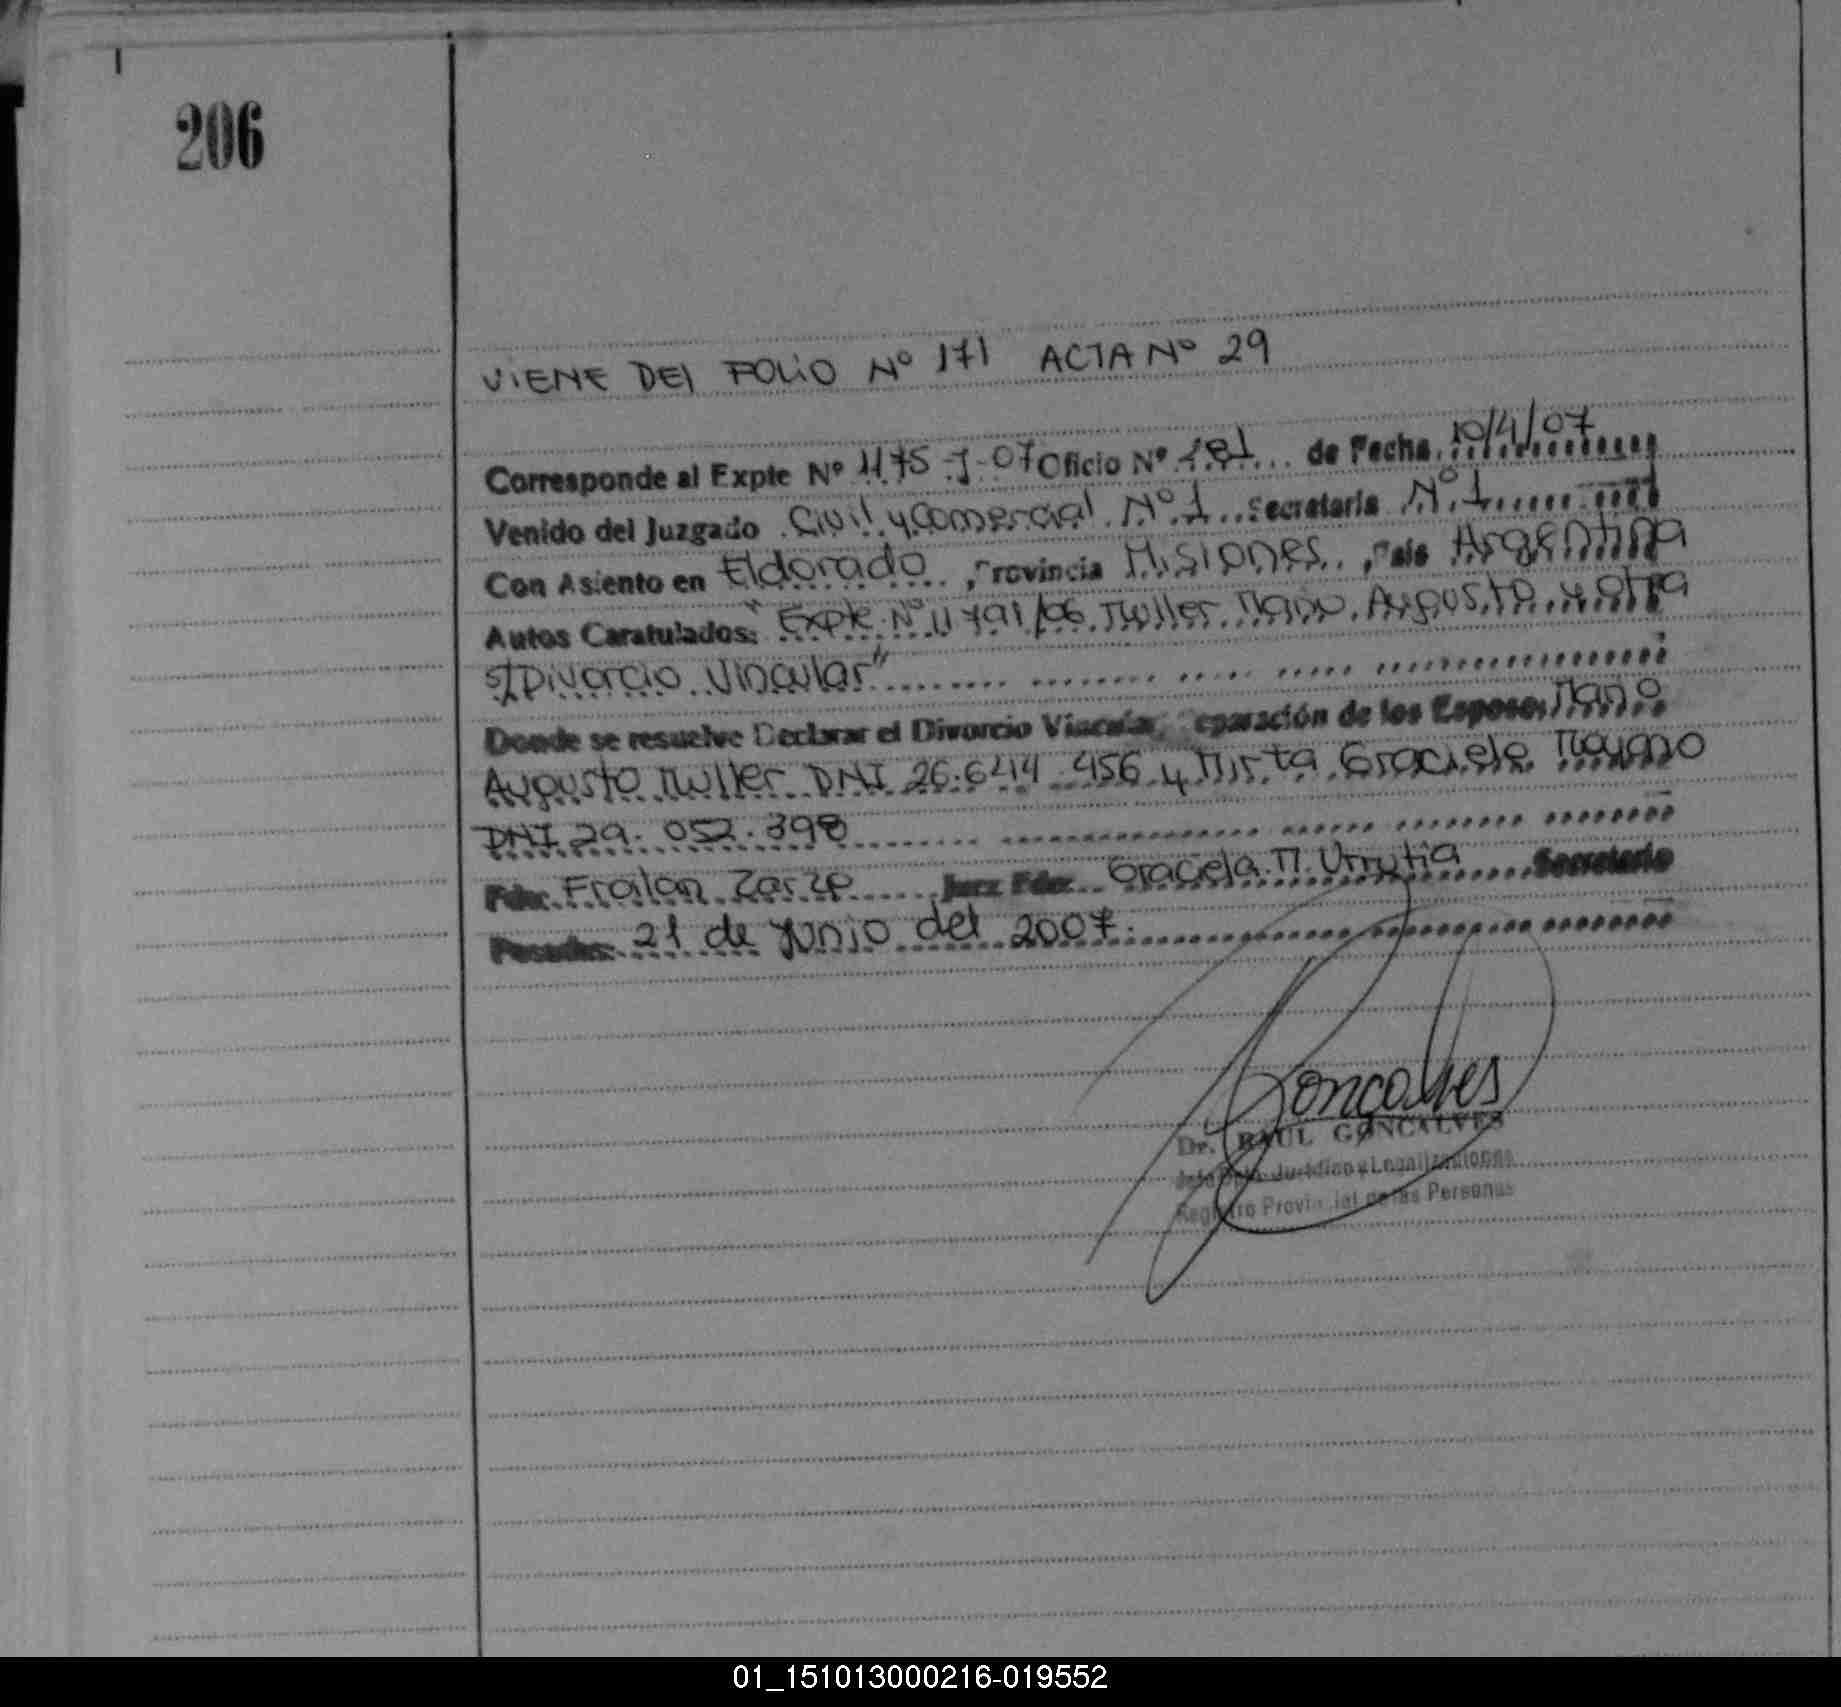 206
VIENE DEL FOLIO Nº 171 ACTA Nº 29
Corresponde al Expte Nº 1175-J-07 Oficio Nº 181 de Fecha 10/4/07
Venido del Juzgado Civil y Comercial Nº 1 Secretaria Nº 1
Con Asiento en Eldorado, Provincia Misiones, Pais Argentina
Autos Caratulados: "Expte Nº 11791/06 Muller Mario Augusto y otra
s/Divorcio Vincular"
Donde se resuelve Declarar el Divorcio Vincular, Separación de los Esposos Mario
Augusto Muller DNI 26.644.456 y Mirta Graciela Moyano
DNI 29.052.398
Fdo: Froilan Zarze Juez Fdo: Graciela M. Urrutia Secretario
Posadas: 21 de Junio del 2007.
Goncalves
Dr. RAUL GONCALVES
Jefe Dpto Jurídico y Legalizaciones
Registro Provincial de las Personas
01_151013000216-019552